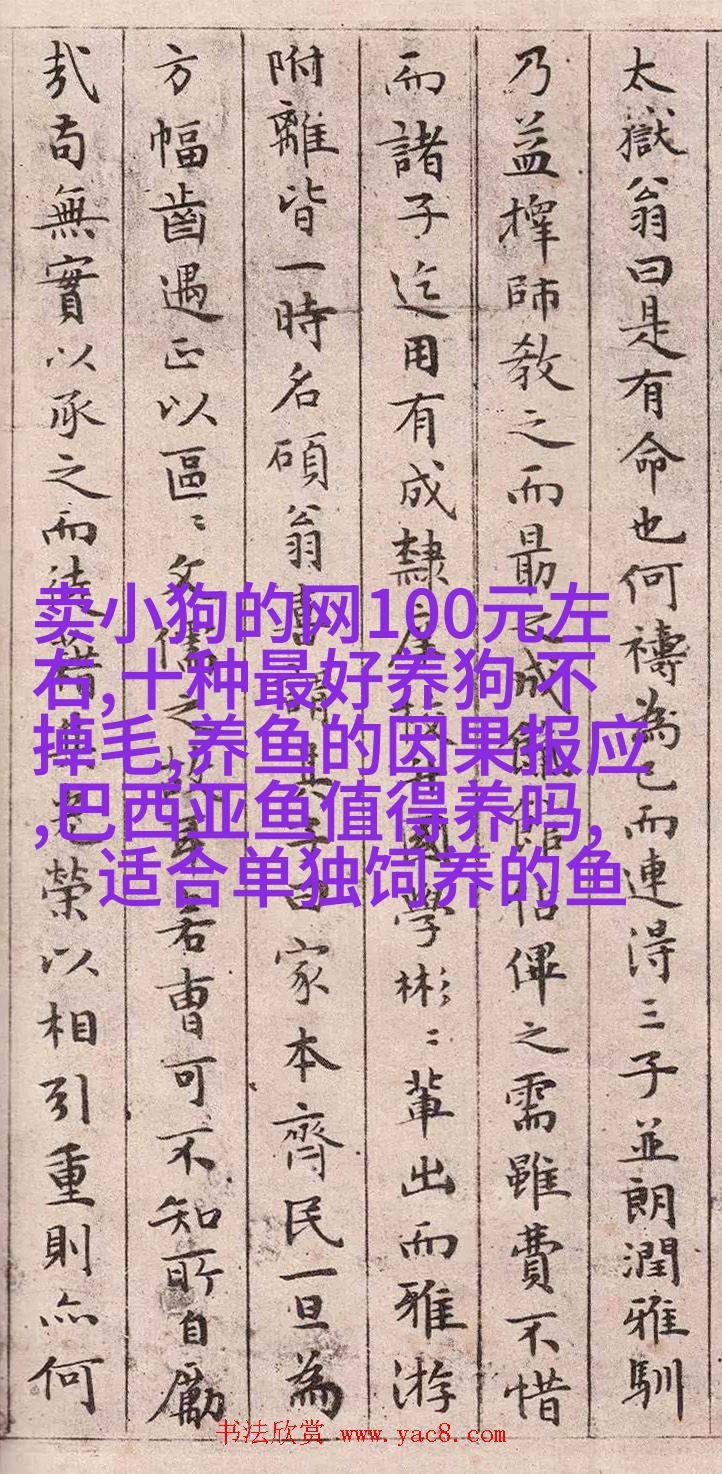 太嶽翁曰是有命也何禱為已而連得三子並朗潤雅馴
乃益擇師教之而最之成餼館佔俾之需雖費不惜
而諸子迄用有成隸學國學彬〻輩出而雅游
附離皆一時名碩翁喜謂其子曰家本齊民一旦為
方幅齒遇正以區〻文儒之故耳若曹可不知所自勵
哉苟無實以承之而徒借其光榮以相引重則亦何
卖小狗的网100元左
右,十种最好养狗 不
掉毛,养鱼的因果报应
,巴西亚鱼值得养吗,
适合单独饲养的鱼
书法欣赏 www.yac8.com